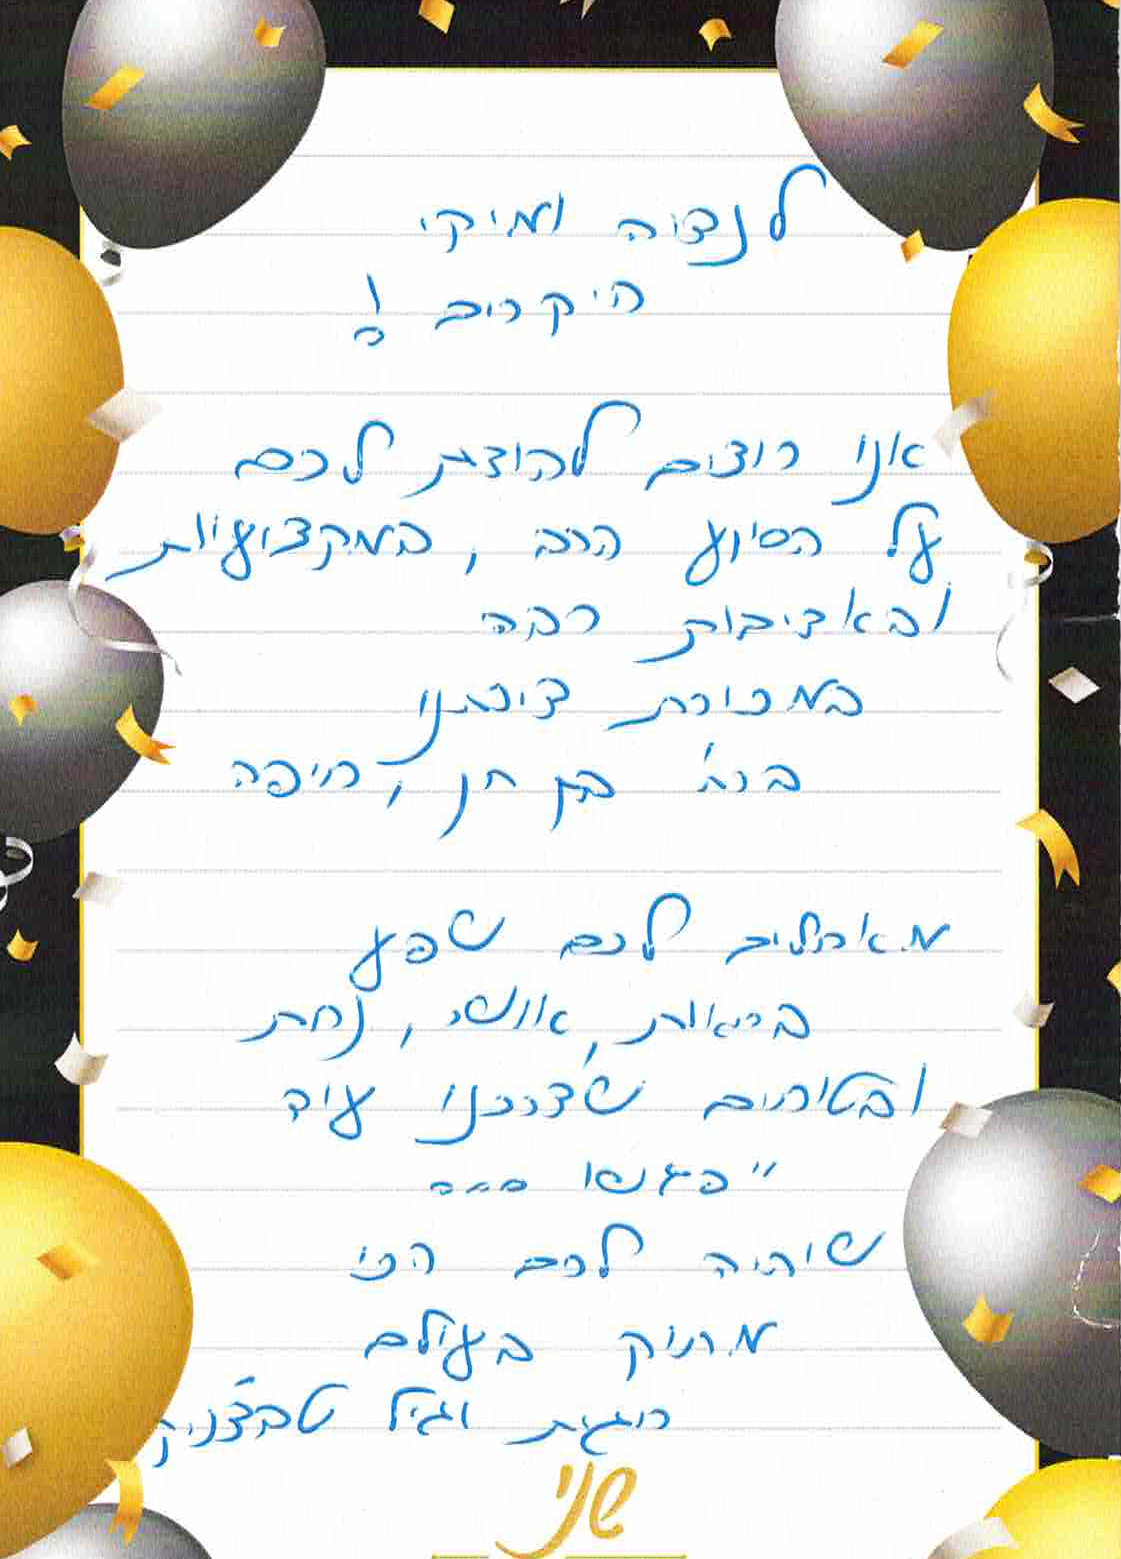 לנציה ומיקי
היקרים!
אנו רוצים להודות לכם
על הסיוע הרב, במקצועיות
ובאדיבות רבה
במכירת דירתנו
ברח' בן חן, חיפה
מאחלים לכם שפע
בריאות, אושר, נחת
ובטוחים שדרכנו עוד
"יפגשו...
שיהיה לכם הכי
מתוק בעולם
רוגית וגיל טבצ'ניק
שני